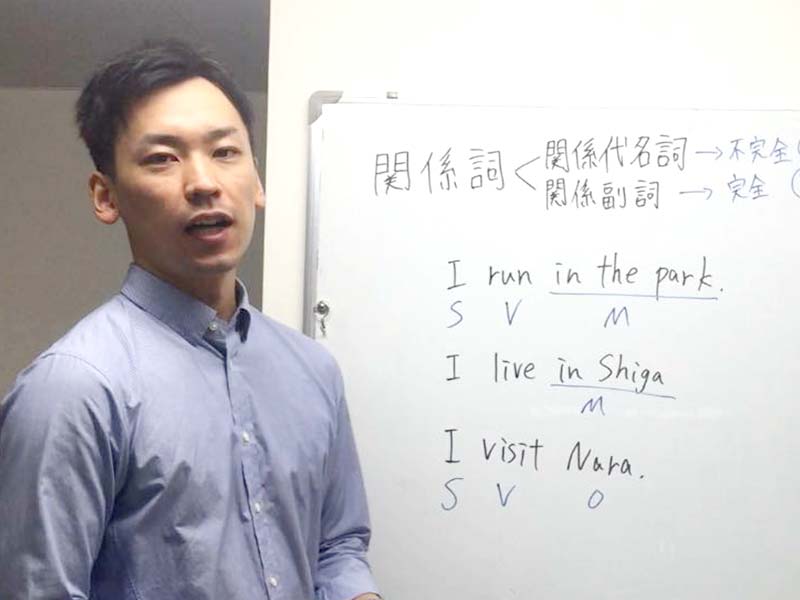 関係詞 < 関係代名詞 → 不完全(
関係副詞 → 完全 (
I run in the park.
S V M
I live in Shiga
M
I visit Nara.
S V O